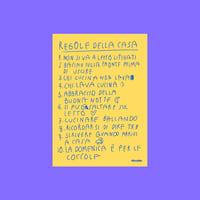 REGOLE DELLA CASA
1. NON SI VA A LETTO LITIGATI
2. BACINO SULLA FRONTE PRIMA
DI USCIRE
3. CHI CUCINA NON LAVA
4. CHI LAVA CUCINA :)
5. ABBRACCIO DELLA
BUONA NOTTE
6. SI PUÒ SALTARE SUL
LETTO
7. CUCINARE BALLANDO
8. RICORDARSI DI DIRE TI
9. SCRIVERE QUANDO ARRIVI
A CASA
10. LA DOMENICA È PER LE
COCCOLE